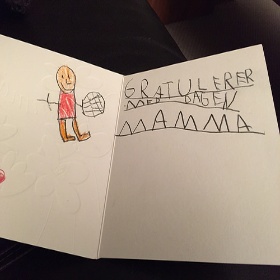 GRATULERER
MED DAGEN
MAMMA